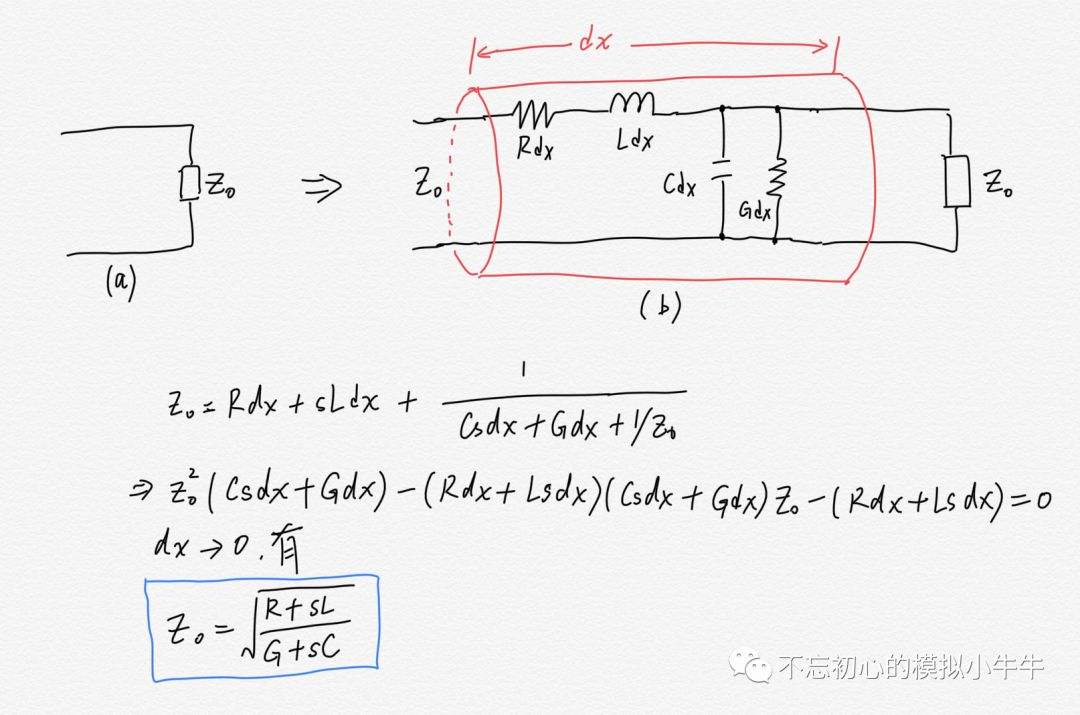 dx
Rdx
Ldx
Z₀ ⇒ Z₀ Cdx Gdx Z₀
(a)
(b)
Z₀ = Rdx + sLdx + 1/(Csdx + Gdx + 1/Z₀)
⇒ Z₀²(Csdx + Gdx) − (Rdx + Lsdx)(Csdx + Gdx)Z₀ − (Rdx + Lsdx) = 0
dx → 0 . 有
Z₀ = √((R + sL)/(G + sC))
不忘初心的模拟小牛牛